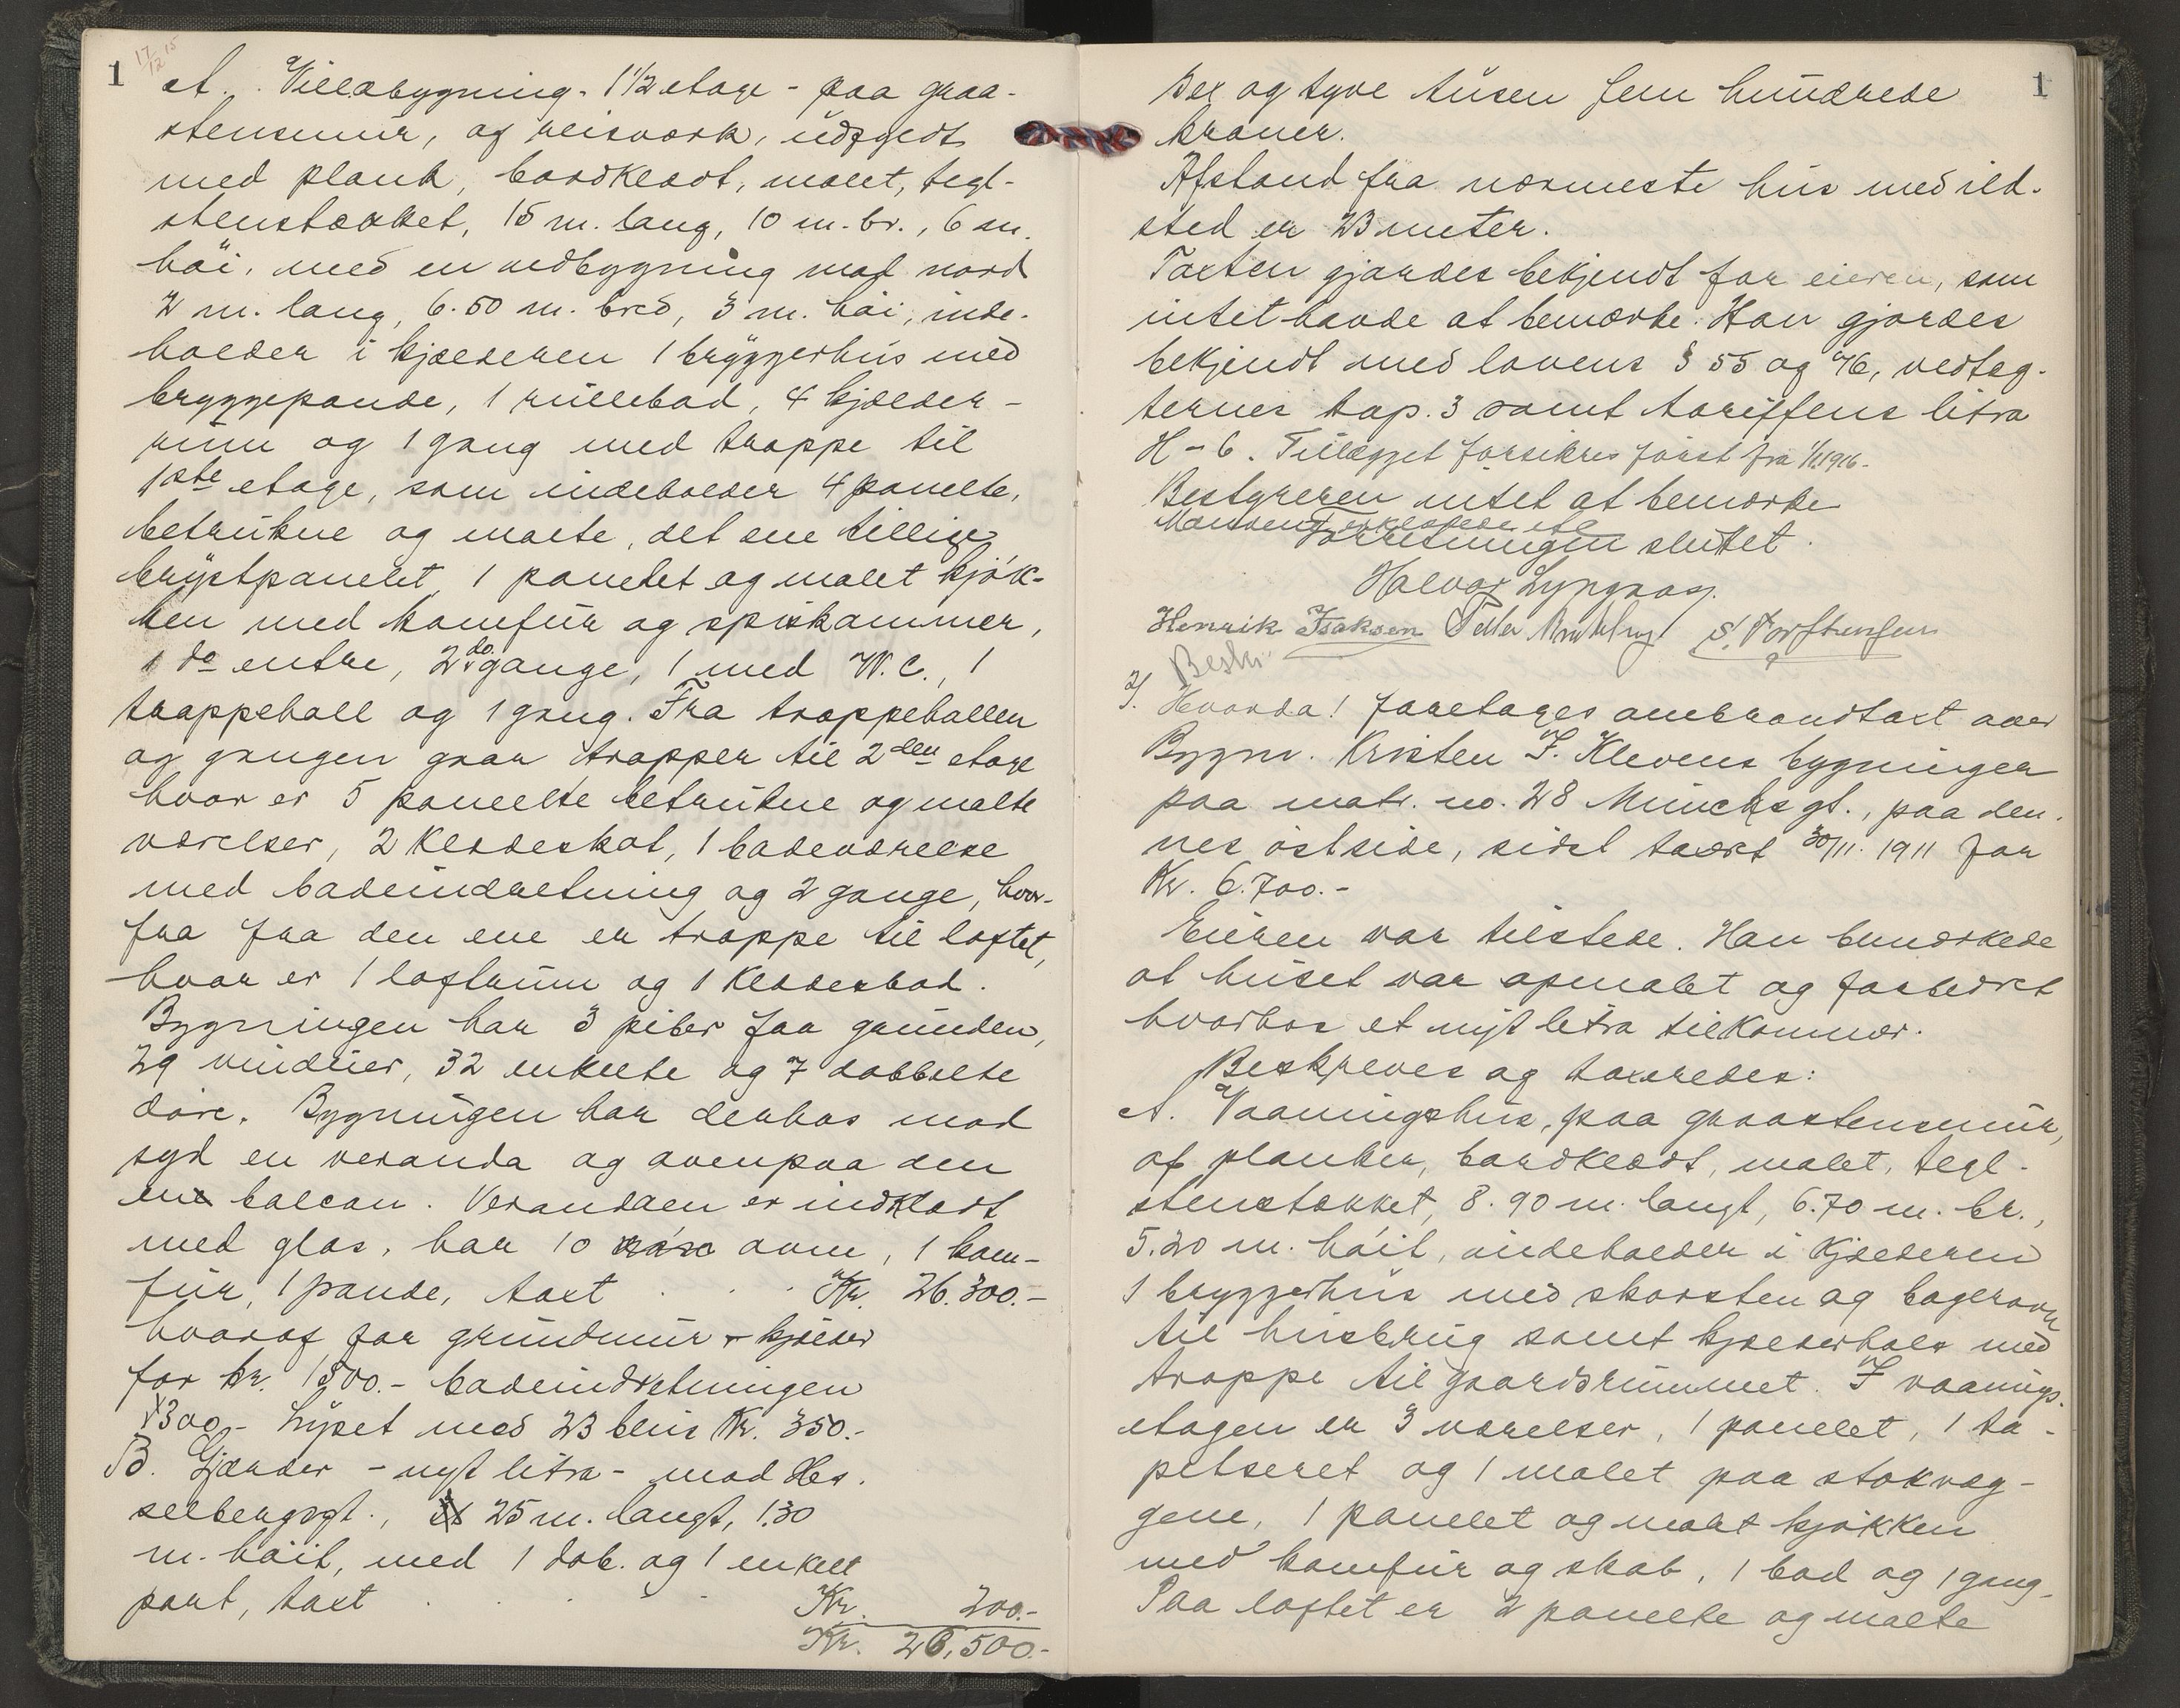 1
17/12 15
A. Villabygning - 1 1/2 etage - paa graa-
stensmur, af reisverk, udfyldt
med plank, bordklædt, malet, tegl-
stenstækket, 15 m. lang, 10 m. br., 6 m.
høi, med en udbygning mod nord
2 m. lang, 6.50 m. bred, 3 m. høi, inde-
holder i kjælderen 1 bryggerhus med
bryggepande, 1 rullebod, 4 kjælder-
rum og 1 gang med trappe til
1ste etage, som indeholder 4 panelte,
betrukne og malte, det ene tillige
brystpanelet, 1 panelet og malet kjøk-
ken med komfur og spiskammer,
1 do entre, 2 do gange, 1 med W.C., 1
trappehall og 1 gang. Fra trappehallen
og gangen gaar trapper til 2den etage
hvor er 5 panelte betrukne og malte
værelser, 2 klædeskot, 1 badeværelse
med badeindretning og 2 gange, hvor-
fra fra den ene er trappe til loftet,
hvor er 1 loftrum og 1 klædesbod.
Bygningen har 3 piber fra grunden,
29 vinduer, 32 enkelte og 7 dobbelte
døre. Bygningen har derhos mod
syd en veranda og ovenpaa den
en balcon. Verandaen er indklædt
med glas, har 10 ovne, 1 kom-
fur, 1 pande, taxt Kr. 26.300.-
hvoraf for grundmur + kjælder
for kr. 1800.- badeindretningen
300.- Lyset med 23 blus Kr. 350.-
B. Gjærder - nyt litra - mod Hes-
selbergsgt., 25 m. langt, 1.30
m. høit, med 1 dob. og 1 enkelt
port, taxt Kr. 200.-
Kr. 26,500.-
1
Sex og tyve tusen fem hundrede
kroner.
Afstand fra nærmeste hus med ild-
sted er 23 meter.
Taxten gjordes bekjendt for eieren, som
intet havde at bemærke. Han gjordes
bekjendt med lovens § 55 og 76, vedtæg-
ternes kap. 3 samt tariffens litra
H - 6. Tillægget forsikres først fra 1/1 1916.
Bestyreren intet at bemærke
Forretningen sluttet.
Halvor Lyngaas.
Henrik Isaksen S. Torstensen
Beskr
2/. Hvorda! foretages ombrandtaxt over
Bygm. Kristen I. Klevens bygninger
paa matr. no. 28 Munchs gt., paa den-
nes østside, sidst taxert 30/11. 1911 for
Kr. 6.700.-
Eieren var tilstede. Han bemærkede
at huset var opmalet og forbedret
hvorhos et nyt litra tilkommer.
Beskreves og taxeredes:
A. Vaaningshus, paa graastensmur,
af planker, bordklædt, malet, tegl-
stenstækket, 8.90 m. langt, 6.70 m. br.,
5.20 m. høit, indeholder i kjælderen
1 bryggerhus med skorsten og bagerovn
til husbrug samt kjælderhals med
trappe til gaardsrummet. I vaanings-
etagen er 3 værelser, 1 panelet, 1 ta-
petseret og 1 malet paa stokvæg-
gene, 1 panelet og malet kjøkken
med komfur og skab, 1 bod og 1 gang-
Paa loftet er 2 panelte og malte